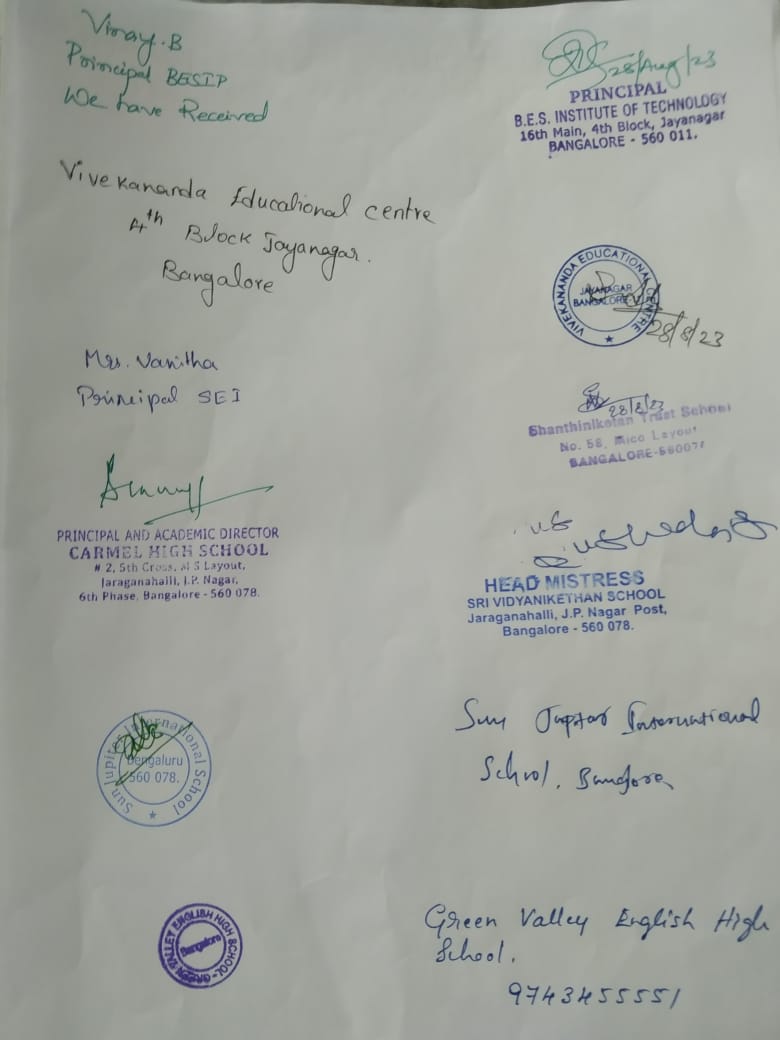 Vinay. B
Principal BESIP
We have Received
28/Aug/23
PRINCIPAL
B.E.S. INSTITUTE OF TECHNOLOGY
16th Main, 4th Block, Jayanagar
BANGALORE - 560 011.
Vivekananda Educational centre
4th Block Jayanagar.
Bangalore
VIVEKANANDA EDUCATIONAL CENTRE
JAYANAGAR
BANGALORE
28/8/23
Mrs. Vanitha
Principal SEI
28/8/23
Shanthiniketan Trust School
No. 58, Mico Layout
BANGALORE-560076
PRINCIPAL AND ACADEMIC DIRECTOR
CARMEL HIGH SCHOOL
# 2, 5th Cross, M S Layout,
Jaraganahalli, J.P. Nagar,
6th Phase, Bangalore - 560 078.
HEAD MISTRESS
SRI VIDYANIKETHAN SCHOOL
Jaraganahalli, J.P. Nagar Post,
Bangalore - 560 078.
Sun Jupiter International School
Bengaluru
560 078.
Sun Jupiter International
School,
GREEN VALLEY ENGLISH HIGH SCHOOL
Bangalore
Green Valley English High
School.
9743455551